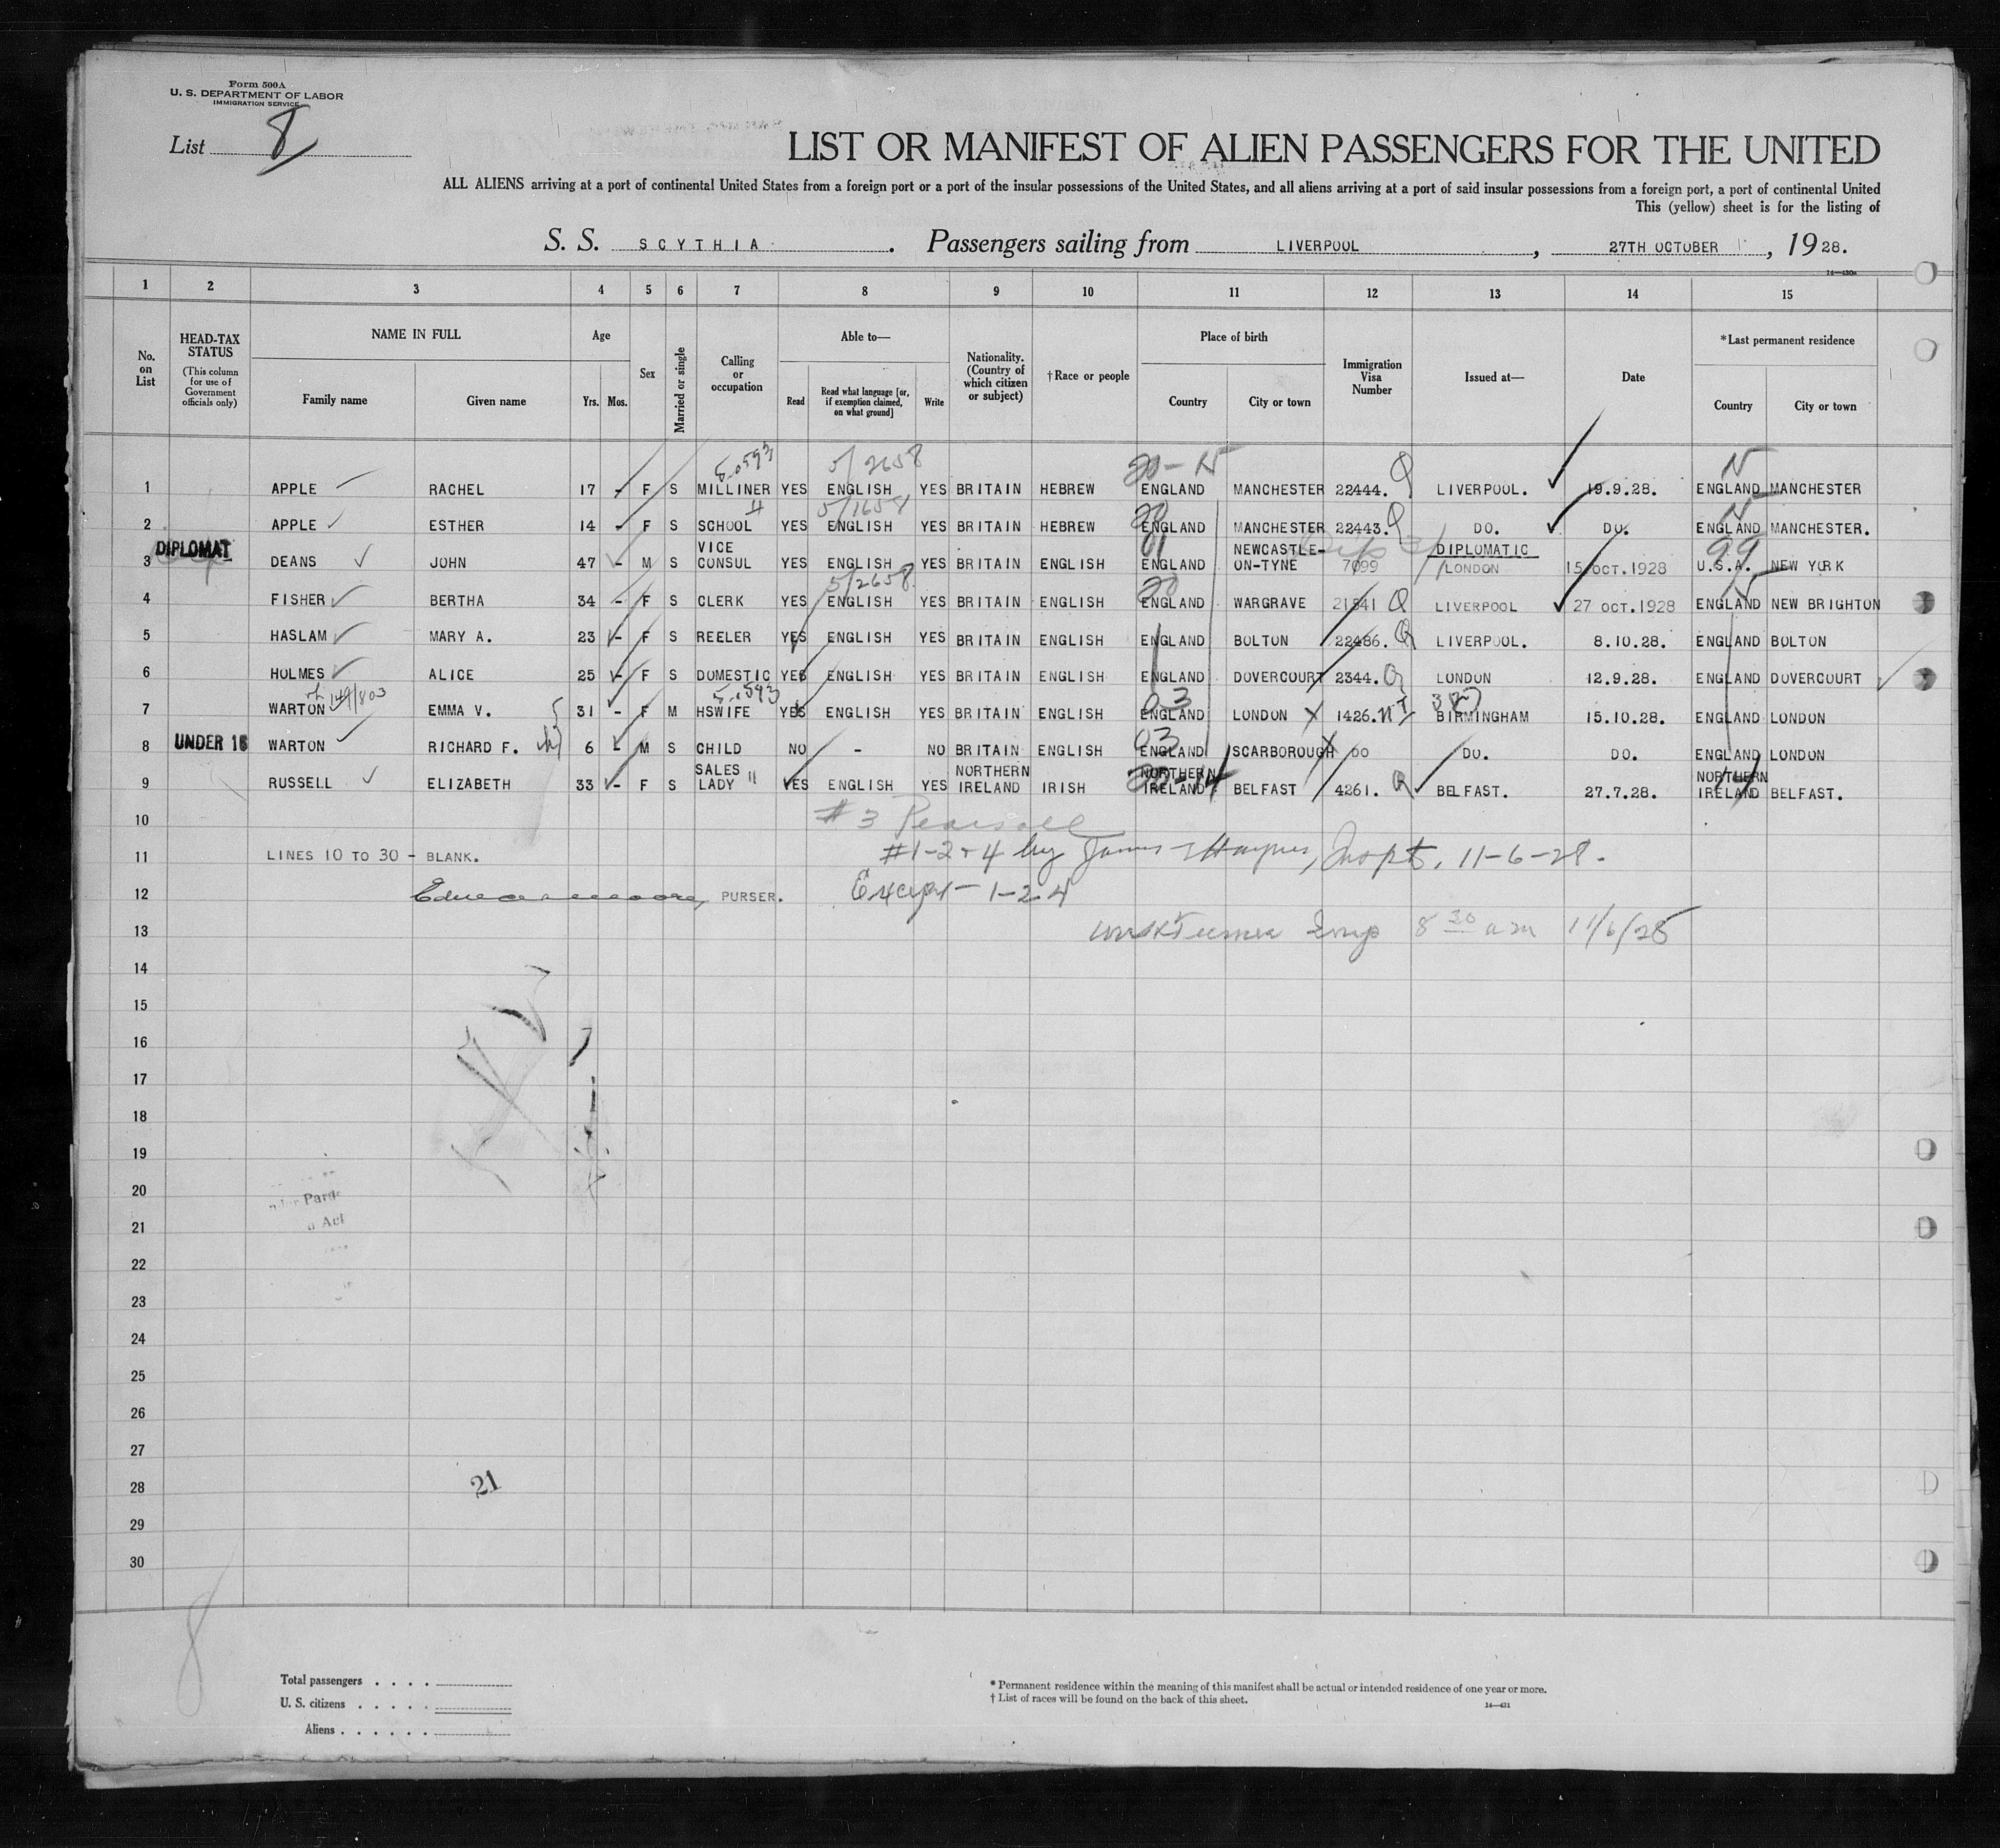 Form 500A
U. S. DEPARTMENT OF LABOR
IMMIGRATION SERVICE
List 8
LIST OR MANIFEST OF ALIEN PASSENGERS FOR THE UNITED
ALL ALIENS arriving at a port of continental United States from a foreign port or a port of the insular possessions of the United States, and all aliens arriving at a port of said insular possessions from a foreign port, a port of continental United
This (yellow) sheet is for the listing of
S. S. SCYTHIA. Passengers sailing from LIVERPOOL, 27TH OCTOBER, 1928.
14—430a
1 2 3 4 5 6 7 8 9 10 11 12 13 14 15
No. on List
HEAD-TAX STATUS (This column for use of Government officials only)
NAME IN FULL
Family name Given name
Age
Yrs. Mos.
Sex
Married or single
Calling or occupation
Able to—
Read Read what language [or, if exemption claimed, on what ground] Write
Nationality. (Country of which citizen or subject)
†Race or people
Place of birth
Country City or town
Immigration Visa Number
Issued at—
Date
*Last permanent residence
Country City or town
5/2658 20-N N
1 APPLE RACHEL 17 - F S MILLINER YES ENGLISH YES BRITAIN HEBREW ENGLAND MANCHESTER 22444. Q LIVERPOOL. 19.9.28. ENGLAND MANCHESTER
5/1658 20 N
2 APPLE ESTHER 14 - F S SCHOOL YES ENGLISH YES BRITAIN HEBREW ENGLAND MANCHESTER 22443. Q DO. DO. ENGLAND MANCHESTER.
DIPLOMAT 01 99
3 DEANS JOHN 47 - M S VICE CONSUL YES ENGLISH YES BRITAIN ENGLISH ENGLAND NEWCASTLE-ON-TYNE 7099 DIPLOMATIC LONDON 15 OCT. 1928 U.S.A. NEW YORK
5/2658. 20 N
4 FISHER BERTHA 34 - F S CLERK YES ENGLISH YES BRITAIN ENGLISH ENGLAND WARGRAVE 21541 Q LIVERPOOL 27 OCT. 1928 ENGLAND NEW BRIGHTON
5 HASLAM MARY A. 23 - F S REELER YES ENGLISH YES BRITAIN ENGLISH ENGLAND BOLTON 22486. Q LIVERPOOL. 8.10.28. ENGLAND BOLTON
6 HOLMES ALICE 25 - F S DOMESTIC YES ENGLISH YES BRITAIN ENGLISH ENGLAND DOVERCOURT 2344. Q LONDON 12.9.28. ENGLAND DOVERCOURT
149/803 03
7 WARTON EMMA V. 31 - F M HSWIFE YES ENGLISH YES BRITAIN ENGLISH ENGLAND LONDON 1426. BIRMINGHAM 15.10.28. ENGLAND LONDON
03
8 UNDER 16 WARTON RICHARD F. 6 - M S CHILD NO - NO BRITAIN ENGLISH ENGLAND SCARBOROUGH DO DO. DO. ENGLAND LONDON
20-14
9 RUSSELL ELIZABETH 33 - F S SALES LADY YES ENGLISH YES NORTHERN IRELAND IRISH NORTHERN IRELAND BELFAST 4261. Q BELFAST. 27.7.28. NORTHERN IRELAND BELFAST.
10 #3 Pearsall
11 LINES 10 TO 30 - BLANK. #1-2+4 by James Haynes, Inspt. 11-6-28.
12 PURSER. Except 1-2-4
13 8 30 am 11/6/28
14
15
16
17
18
19
20
21
22
23
24
25
26
27
28 21
29
30
8
Total passengers . . . .
U. S. citizens . . . . .
Aliens . . . . . .
* Permanent residence within the meaning of this manifest shall be actual or intended residence of one year or more.
† List of races will be found on the back of this sheet.
14—431